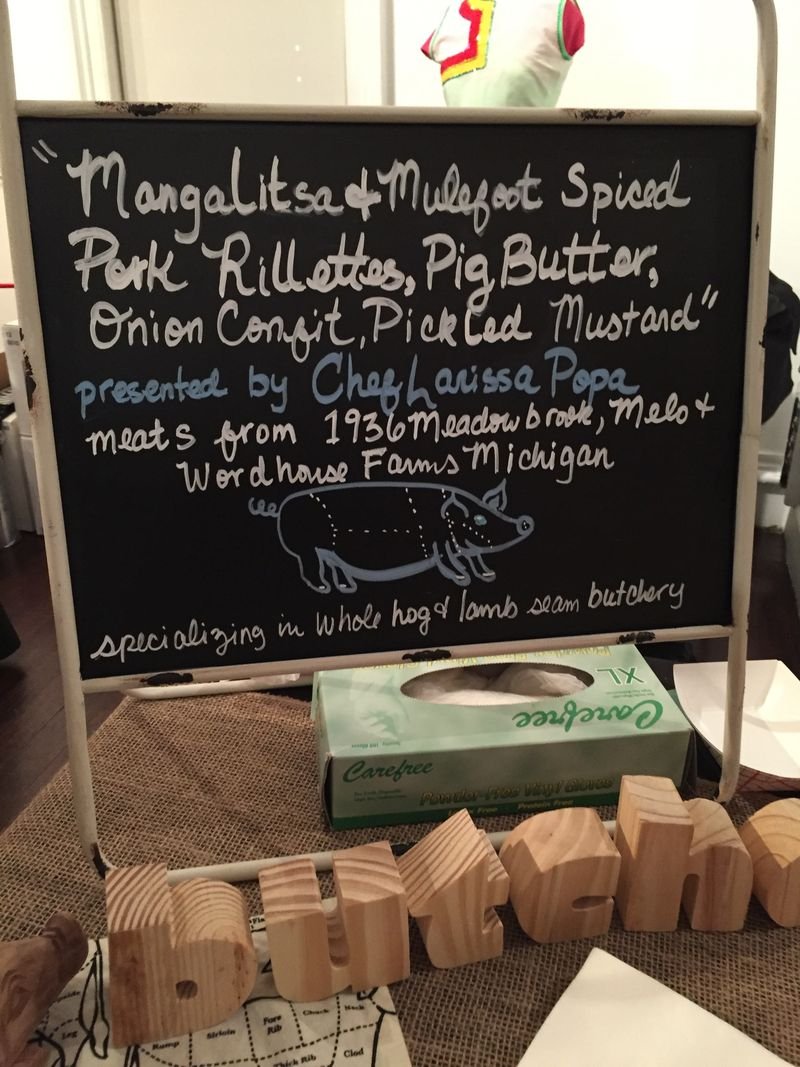 "Mangalitsa & Mulefoot Spiced
Pork Rillettes, Pig Butter,
Onion Confit, Pickled Mustard"
presented by Chef Larissa Popa
meats from 1936 Meadowbrook, Melo &
Wordhouse Farms Michigan
specializing in whole hog & lamb seam butchery
XL
Carefree
Carefree
Powder-Free Vinyl Gloves
Free Protein Free
butch
Leg
Rump
Sirloin
Fore
Rib
Chuck
Neck
Thick Rib
Clod